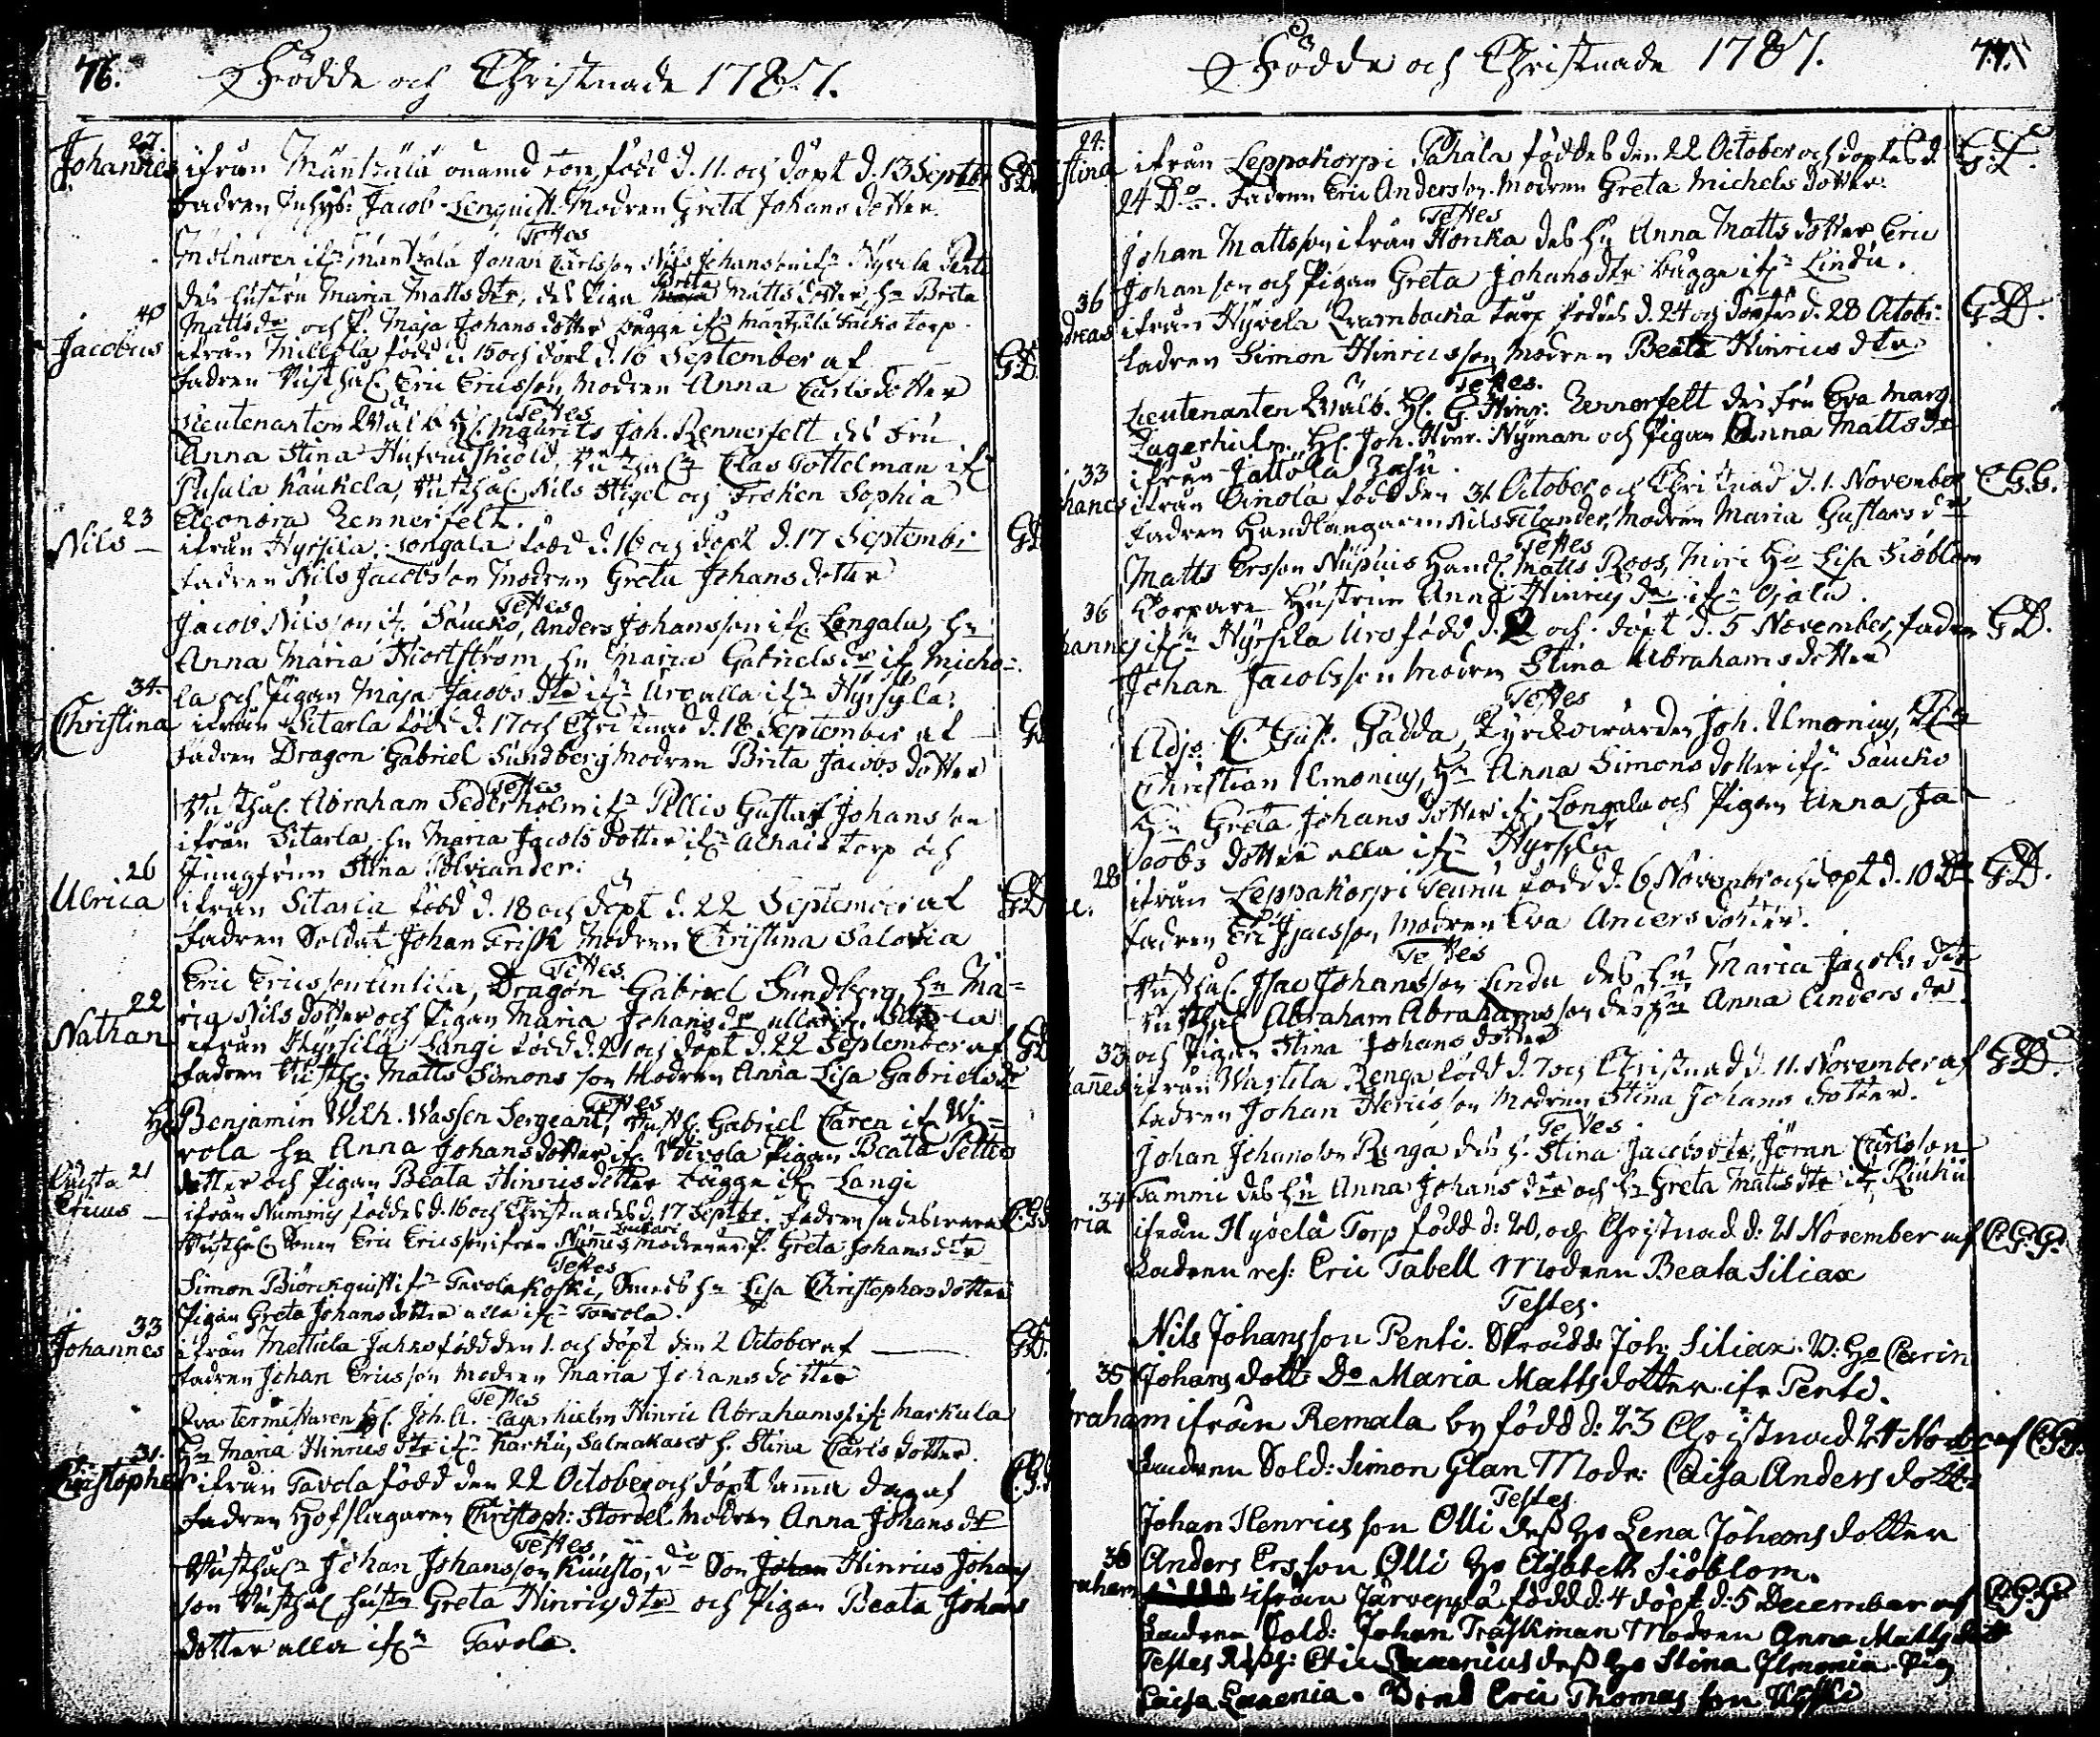 76. Födde och Christnade 1787.
27
Johannes ifrån Mäntsälä onämd Torp född d. 11. och döpt d. 13 Septbr GD.
Fadren Inhys: Jacob Lenquist Modren Greta Johans dotter
Testes
Mölnaren ifn Mäntsälä Johan Carlsson Nils Johansson ifn Hyvela Penti
des hustru Maria Matts dtr, des Piga Brita Matts dotter, hu Brita
Mattsdr och P. Maja Johans dotter bägge ifn Mäntsälä torp.
40
Jacobus ifrån Millola född d. 15 och döpt d. 16 September af GD.
Fadren Rusth. Eric Ericsson, Modren Anna Carlsdotter
Testes
Lieutenanten Wälb. H. Maurits Joh. Rennerfelt des Fru
Anna Stina Clas Tottelman if
Pusula Kaukela, Rusthål. Nils Stigel och Fröken Sophia
Eleonora Rennerfelt.
23
Nils ifrån Hyrsilä Longala född d. 16 och döpt d. 17 Septembr GD
Fadren Nils Jacobsson Modren Greta Johans dotter
Testes
Jacob Nilsson if. Saucko, Anders Johansson if. Longala, hu
Anna Maria Hiortström, hu Maria Gabriels dr if Micho-
la och Pigan Maja Jacobs dtr ifn Uro alla ifn Hyrsylä.
34
Christina ifrån Sitarla född d. 17 och Christnad d. 18 September af GD
Fadren Dragon Gabriel Sundberg Modren Brita Jacobs dotter
Testes
Rusthål Abraham Sederholm ifn Pellis Gustaf Johansson
ifrån Sitarla, hu Maria Jacobs dotter ifn torp och
Jungfrun Stina Polviander.
26
Ulrica ifrån Sitarla född d. 18 och döpt d. 22 September af GD
Fadren Soldat Johan Frisk Modren Christina Salovia
Testes
Eric Ericsson Untila, Dragon Gabriel Sundberg, hu Ma-
ria Nils dotter och Pigan Maria Johans dr alla if.
22
Nathan ifrån Hyrsilä Langi född d. 21 och döpt d. 22 September af GD
Fadren Rusth. Matts Simonsson Modren Anna Lisa Gabriels dr
Testes
H. Benjamin Wilh. Wassen Sergeant, Rusth. Gabriel Caren if. Wi-
rola hu Anna Johans dotter if. Wirola Pigan Beata Petters
dotter och Pigan Beata Hinrics dotter bägge if. Langi
21
Ericus ifrån Nummis föddes d. 16 och Christnades d. 17 Septbr. Fadren sades vara C.G.G.
Rusthål. Sonen Eric Ericsson ifrån Nummis Modren P. Greta Johans dtr
Testes
Simon Biörckquist ifn Tavola Koski, hu Lisa Christophers dotter
Pigan Greta Johans dotter alla ifn Tavola.
33
Johannes ifrån Mettula född den 1. och döpt den 2 October af GD.
Fadren Johan Ericsson Modren Maria Johans dotter
Testes
H. Joh. A. Lagerhielm Hinric Abrahamss. if. Markula
Hu Maria Hinrics dtr ifn Karku, Salmakares h. Stina Carls dotter.
31.
Christopher ifrån Tavola född den 22 October och döpt samma dag af C.G.
Fadren Hofslagaren Christoph: Stordel Modren Anna Johans dr
Testes
Rusthål. Johan Johansson Kuusto, Son Johan Hinrics Johans
son Rusthål hustr Greta Hinrics dtr och Pigan Beata Johans
dotter alla ifn Tavola.
Födde och Christnade 1787. 77.
24.
stina ifrån Leppakorpi Pahala föddes den 22 October och döptes d. G.D.
24 Do. Fadren Eric Andersson. Modren Greta Michels dotter.
Testes
Johan Mattsson ifrån Honka des hu Anna Matts dotter Eric
Johansson och Pigan Greta Johans dtr bägge if. Lindu.
36
dreas ifrån Hyvelä torp föddes d. 24 och döptes d. 28 Octobr. G.D.
Fadren Simon Hinricsson Modren Beata Hinrics dtr
Testes.
Lieutenanten Wälb. H. G. Hinr. Rennerfelt des fru Eva Marg.
Lagerhielm. H. Joh. Hinr. Nyman och Pigan Anna Matts dr
ifrån Jättölä
33
hanes ifrån Oinola född den 31. October och Christnad d. 1. November C.G.G.
Fadren Handlangaren Nils Filander, Modren Maria Gustavs dr
Testes
Matts Ersson Nupuis Handl. Matts Roos, Hu Lisa Siöblom
Korpare Hustrun Anna Hinrics dtr ifn Ojala.
36
hannes ifn Hyrsilä Uro född d. 2 och döpt d. 5 November, Fadren G.D.
Johan Jacobsson Modren Stina Abrahams dotter
Testes
Adjs. C. Gust. Gadda, Kyrckowärden Joh. Ilmonius,
Christian Ilmonius, Hu Anna Simons dotter ifn Saucko
Hu Greta Johans dotter if. Longala och Pigan Anna Ja-
cobs dotter alla ifn Hyrsylä
28
ifrån Leppakorpi Seunu född d. 6 Novembr och döpt d. 10 G.D.
Fadren Eric Isacsson, Modren Eva Anders dotter.
Testes
Rusthål. Isac Johansson Lindu des hu Maria Jacobs dtr
Rusthål Abraham Abrahamsson des hu Anna Anders dr
och Pigan Stina Johans dotter
33
hannes ifrån Wastila Renga född d. 7 och Christnad d. 11. November af G.D.
Fadren Johan Henricsson Modren Stina Johans dotter.
Testes.
Johan Johansson Renga des h. Stina Jacobs dtr, Jöran Carlsson
Tammi des hu Anna Johans dtr och hu Greta Matts dtr if.
34
ria ifrån Hyvelä Torp född d: 20, och Christnad d: 21 November af C.G.G.
Fadren ref: Eric Tabell Modren Beata Siliax
Testes.
Nils Johansson Penti. Skrädd: Joh: Siliax. Carin
Johans dott: Do Maria Matts dotter ifr Penti.
35
braham ifrån Remala by född d: 23 Christnad 24 Novbr af C.G.G.
Fadren Sold: Simon Glan Modr: Caisa Anders dott:
Testes
Johan Henricsson Olli dess hu Lena Johans dotter
Anders Ersson Olli hu Elisabeth Siöblom.
36
raham ifrån Järvenpää född d: 4 döpt d: 5 December af C.G.G.
Fadren Sold: Johan Träskman Modren Anna Matts dott
Testes dess hu Stina Ilmonia. Pig
Caisa Eric Thomasson